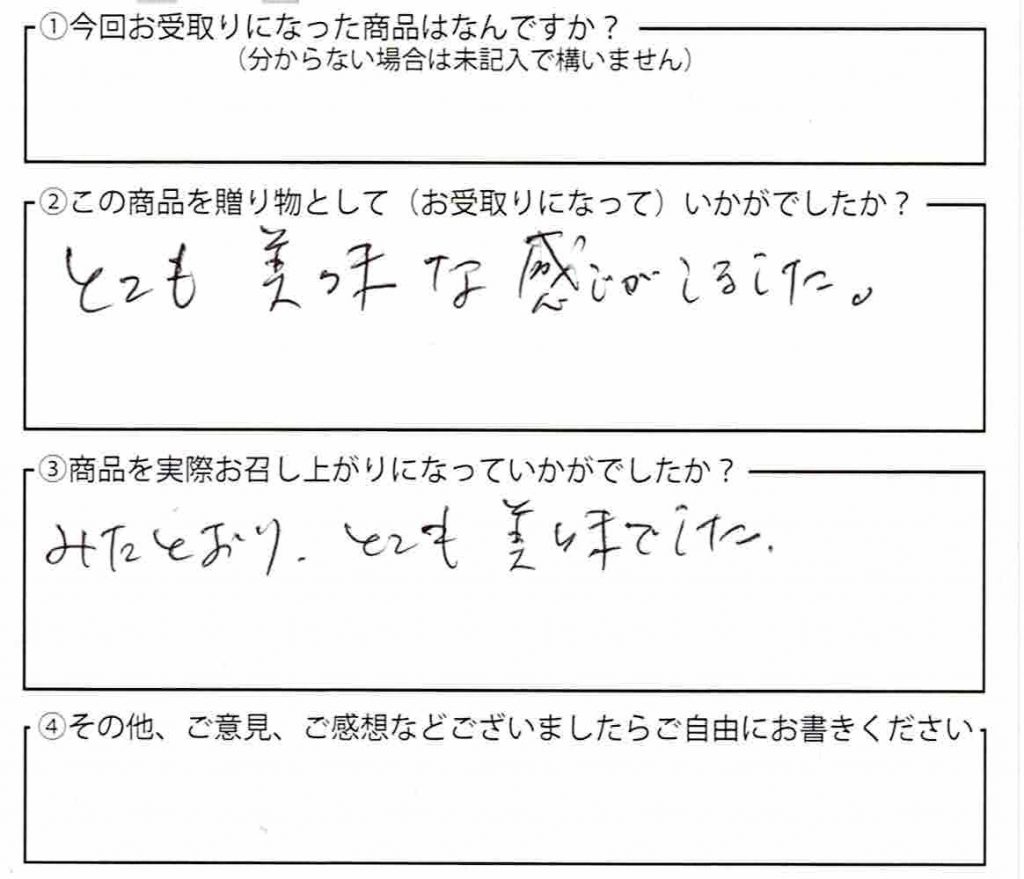 ①今回お受取りになった商品はなんですか？
（分からない場合は未記入で構いません）
②この商品を贈り物として（お受取りになって）いかがでしたか？
とても美味な感じがしました。
③商品を実際お召し上がりになっていかがでしたか？
みたとおり、とても美味でした。
④その他、ご意見、ご感想などございましたらご自由にお書きください